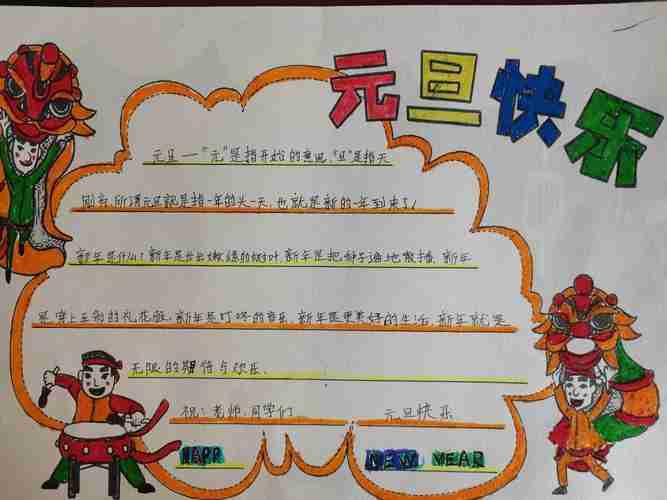 元旦快乐
元旦一"元"是指开始的意思,"旦"是指天
刚亮,所谓元旦就是指一年的头一天,也就是新的一年到来了!
新年是什么?新年是长出嫩绿的树叶,新年是把种子遍地散播,新年
是穿上五彩的礼花瓶,新年是叮咚的音乐,新年是更美好的生活,新年就是
无限的期待与欢乐、
祝:老师、同学们 元旦快乐
HAPP NEW YEAR